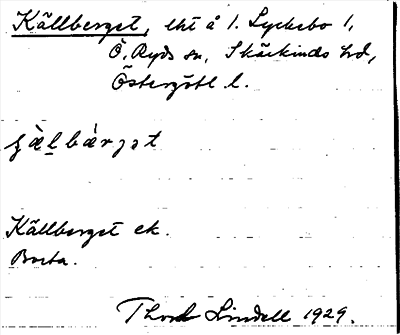 Källberget, lht å 1. Lyckebo 1,
Ö. Ryds sn, Skärkinds hd,
Östergötl l.
Källberget ek.
Borta.
Lindell 1929.